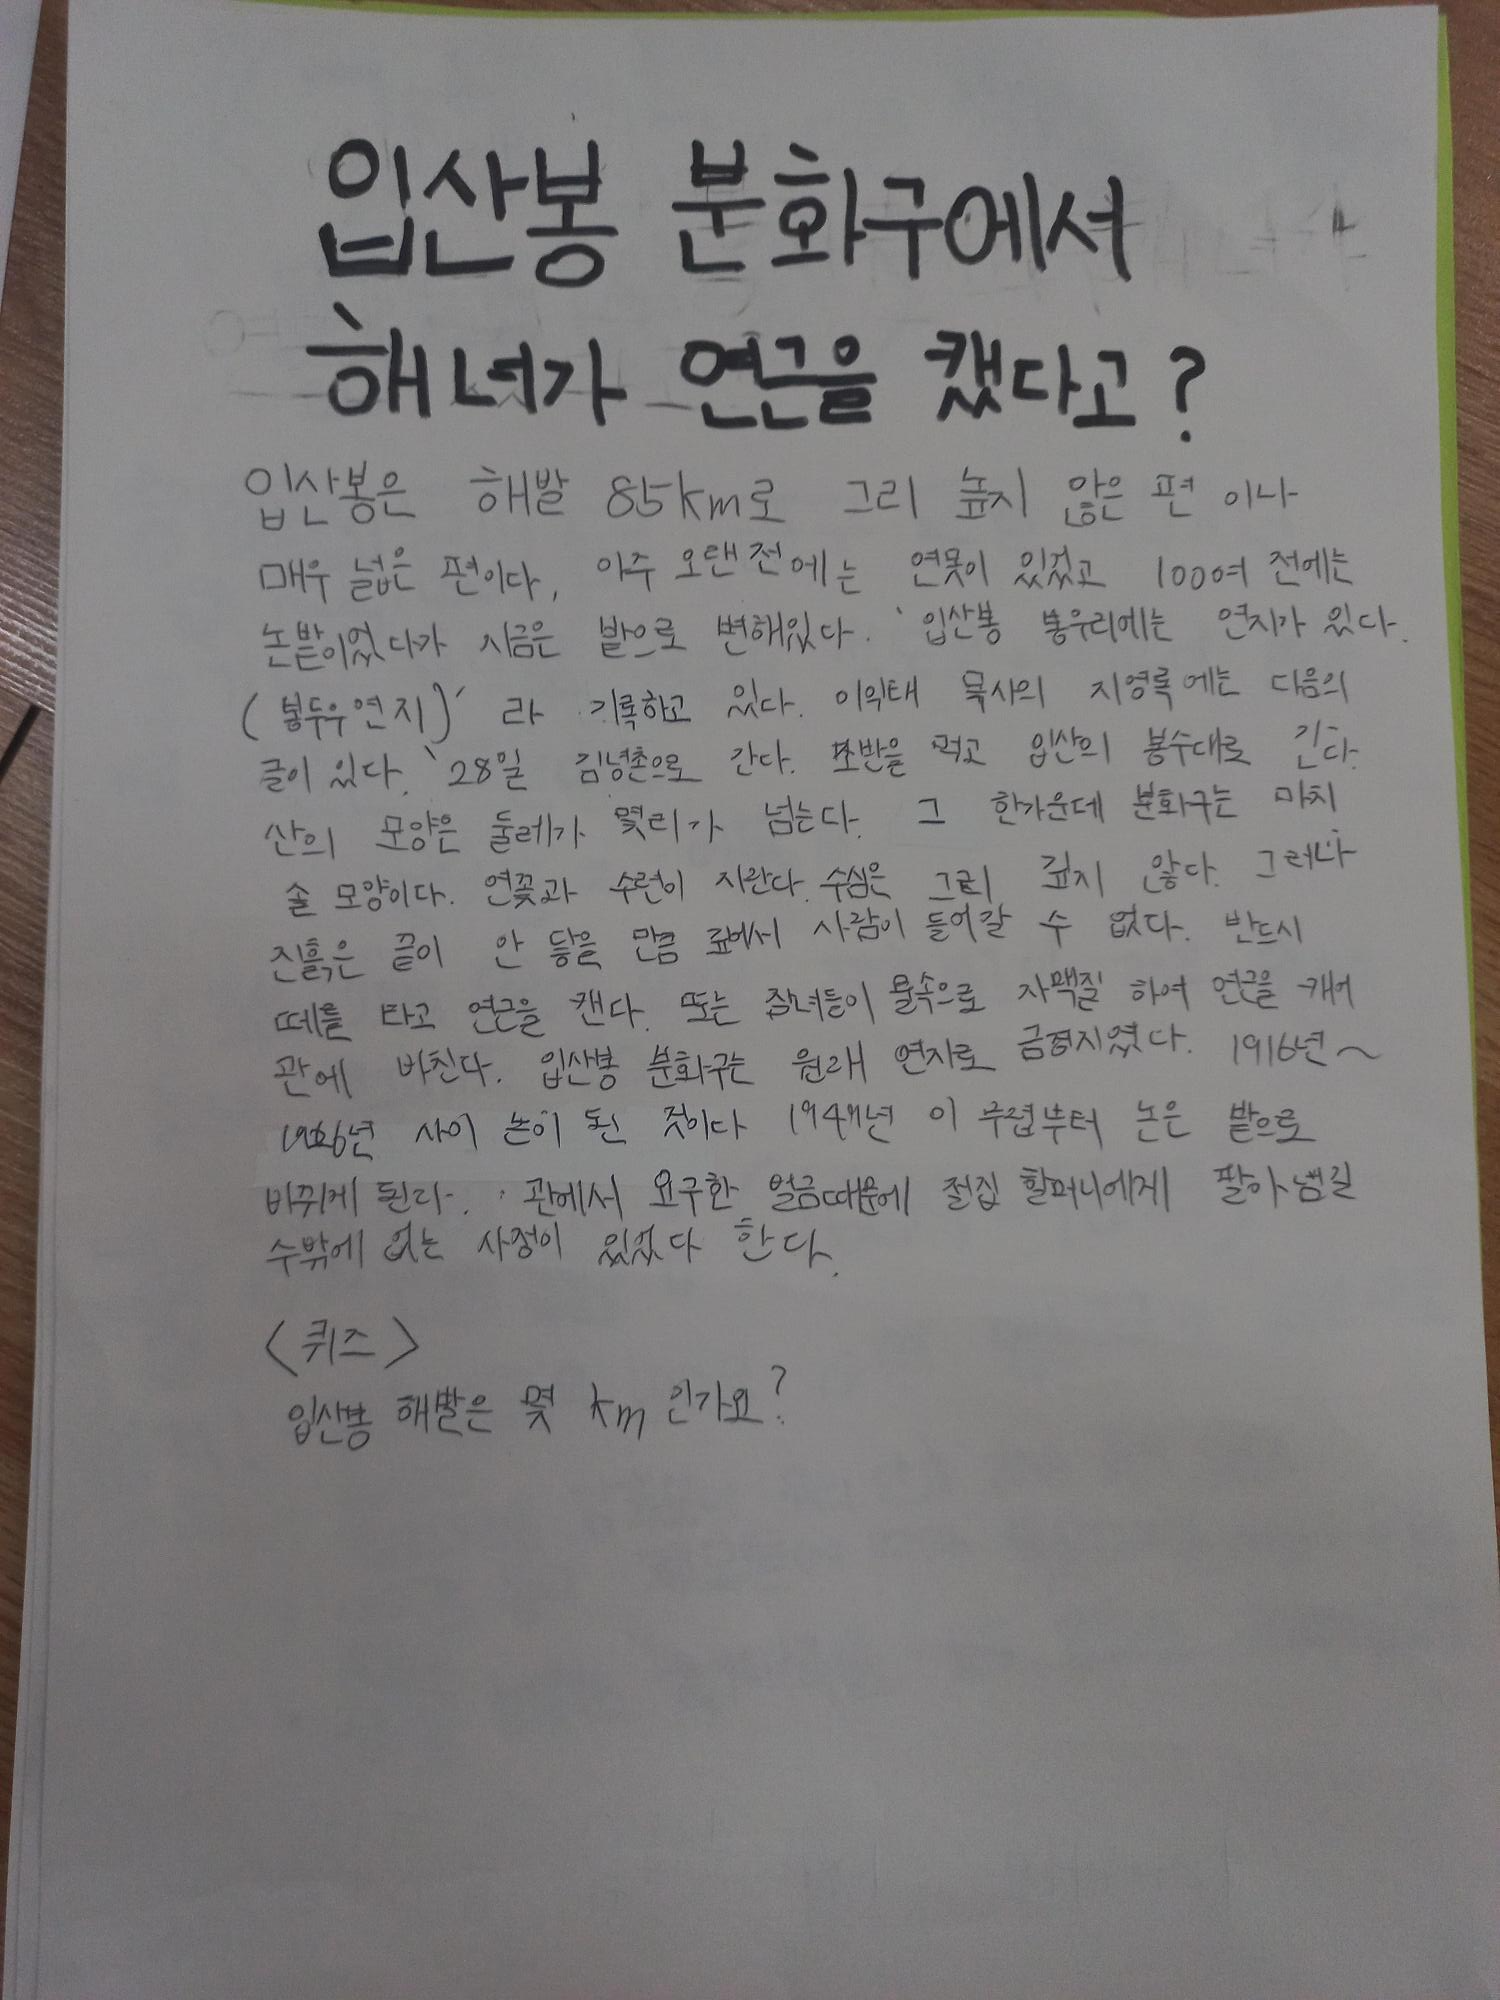 입산봉 분화구에서
해녀가 연근을 캤다고?
입산봉은 해발 85km로 그리 높지 않은 편 이나
매우 넓은 편이다, 아주 오랜 전에는 연못이 있었고 100여 전에는
논밭이었다가 지금은 밭으로 변해있다. '입산봉 봉우리에는 연지가 있다.
(봉두우연지)' 라 기록하고 있다. 이익태 목사의 지영록에는 다음의
글이 있다. '28일 김녕촌으로 간다. 조반을 먹고 입산의 봉수대로 간다.
산의 모양은 둘레가 몇리가 넘는다. 그 한가운데 분화구는 마치
솥 모양이다. 연꽃과 수련이 자란다. 수심은 그리 깊지 않다. 그러나
진흙은 끝이 안 닿을 만큼 깊어서 사람이 들어갈 수 없다. 반드시
떼를 타고 연근을 캔다. 또는 잠녀들이 물속으로 자맥질 하여 연근을 캐어
관에 바친다. 입산봉 분화구는 원래 연지로 금경지였다. 1916년~
1926년 사이 논이 된 것이다 1947년 이 무렵부터 논은 밭으로
바뀌게 된다. 관에서 요구한 얼금때문에 절집 할머니에게 팔아넘길
수밖에 없는 사정이 있었다 한다.
<퀴즈>
입산봉 해발은 몇 km 인가요?